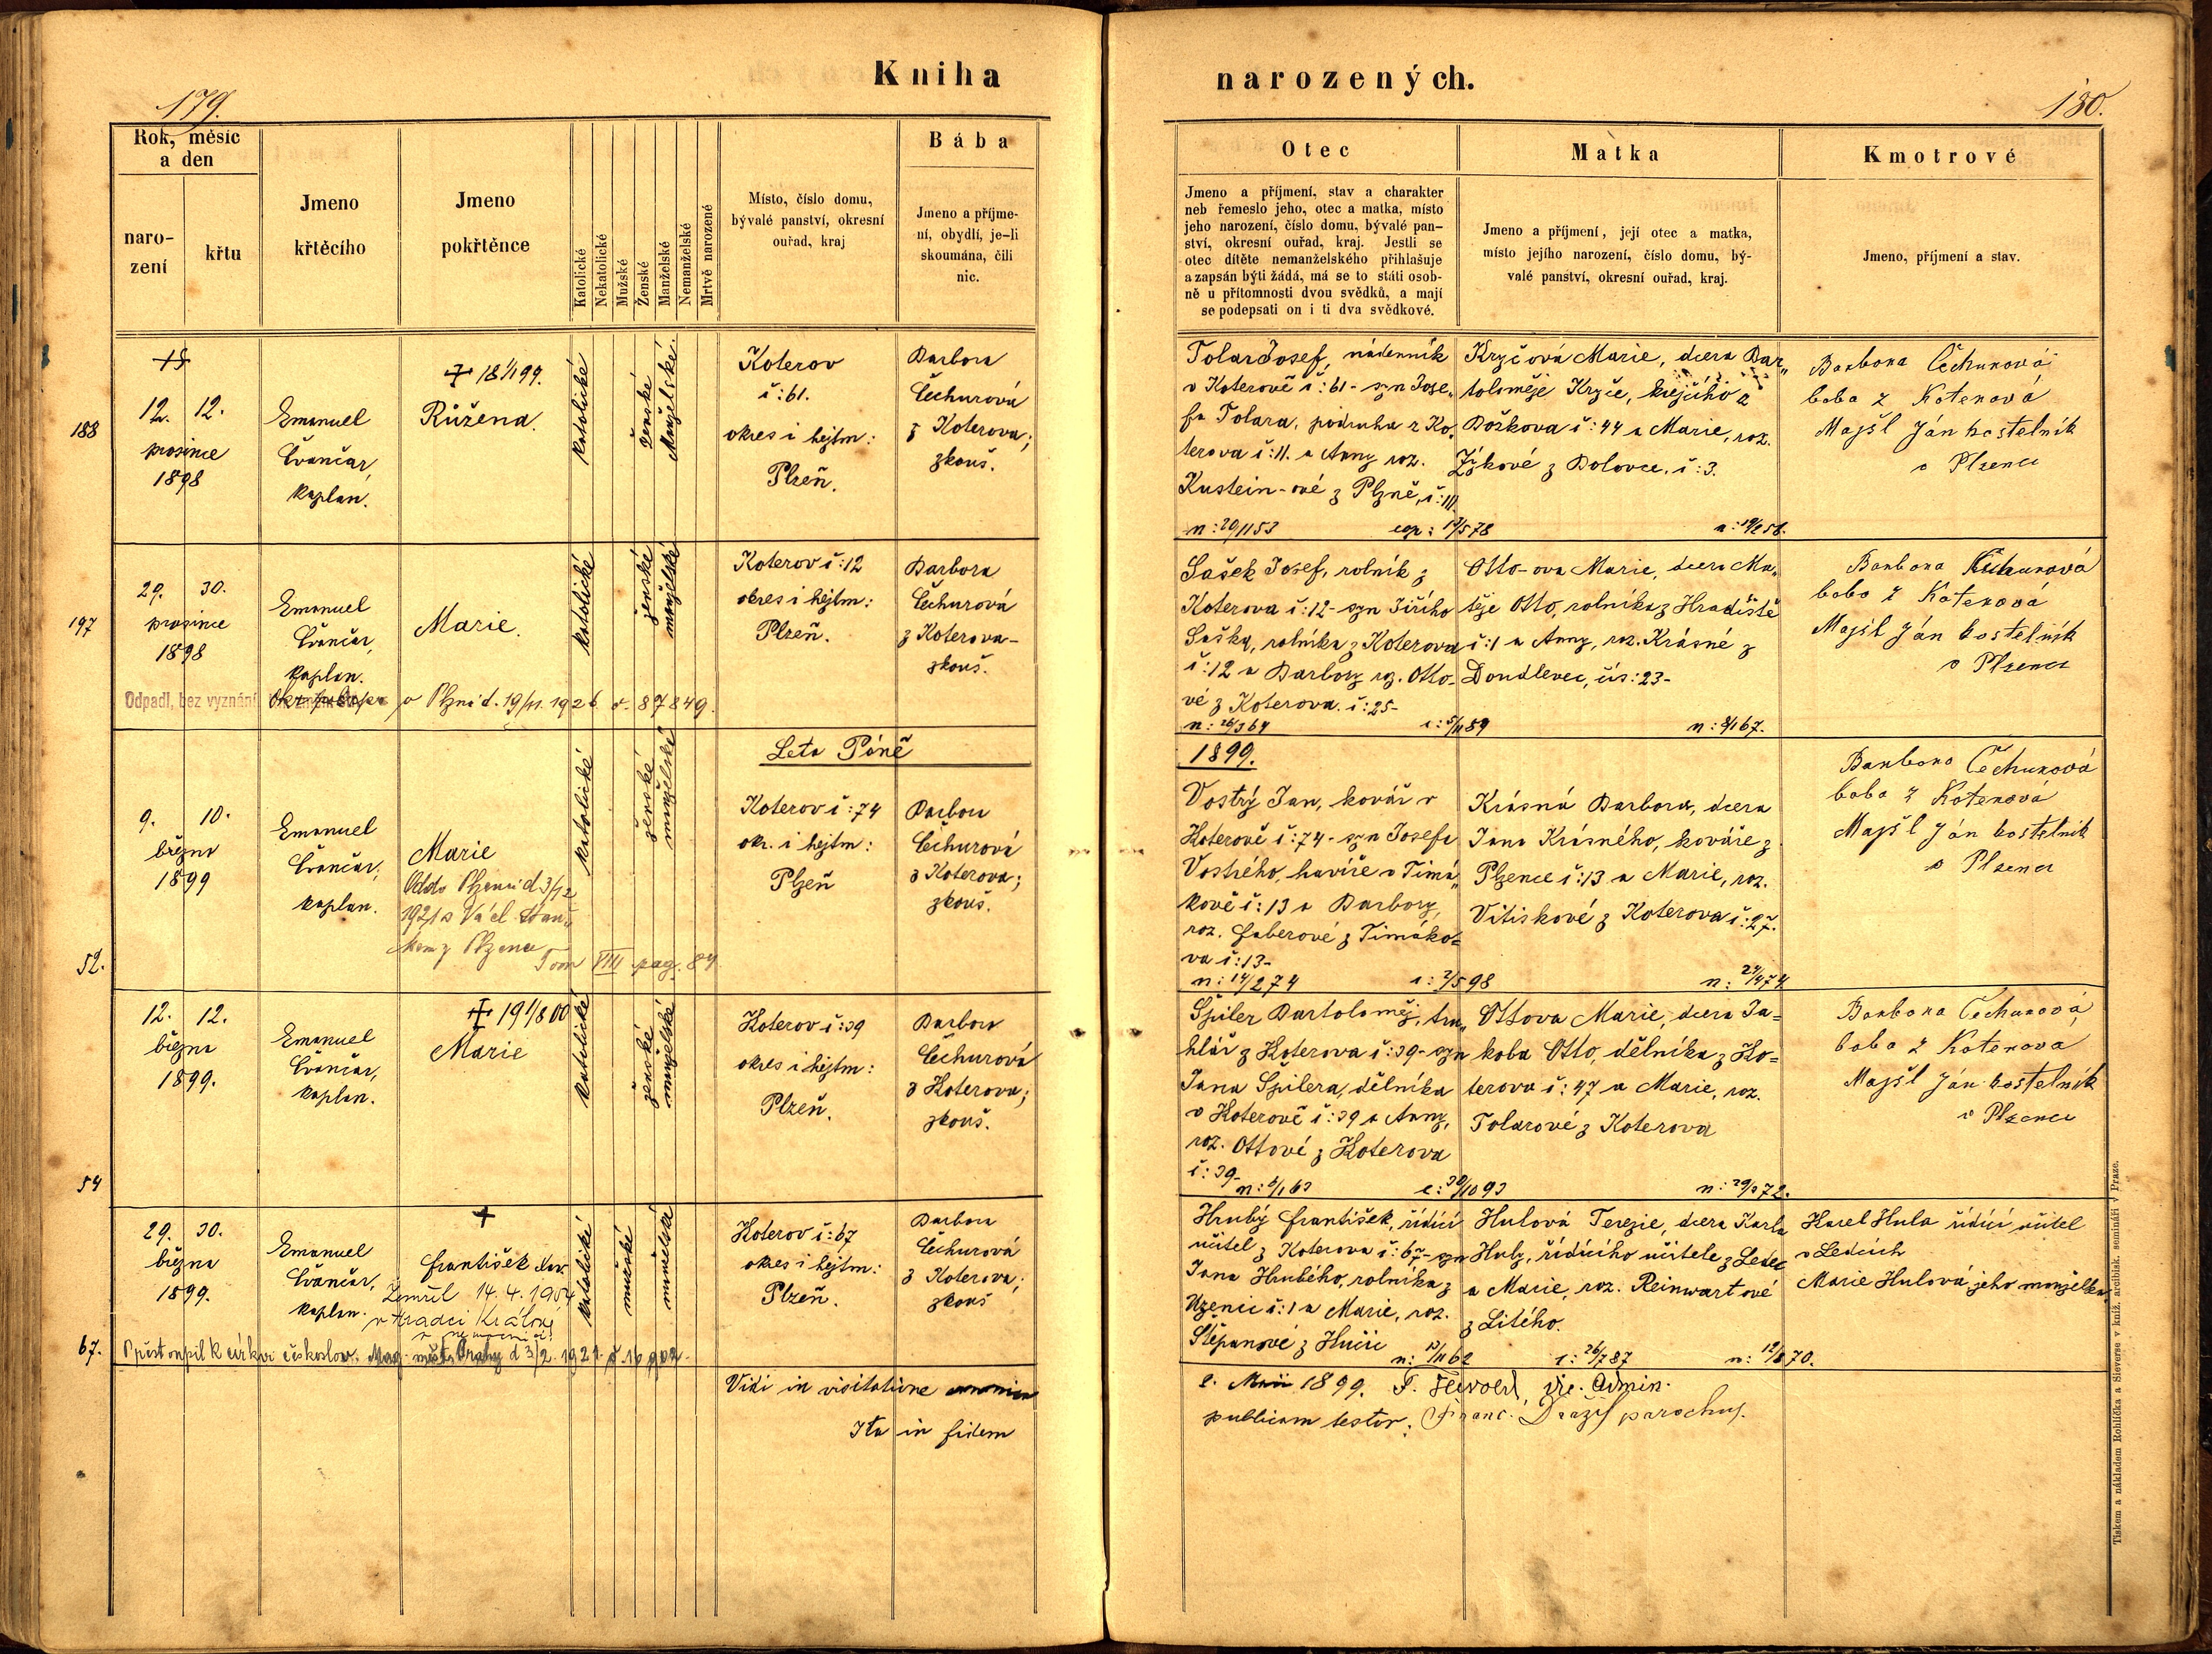 Kniha narozených.
179.
180.
Rok, měsíc a den
naro-
zení
křtu
Jmeno
křtěcího
Jmeno
pokřtěnce
Katolické
Nekatolické
Mužské
Ženské
Manželské
Nemanželské
Mrtvě narozené
Místo, číslo domu,
bývalé panství, okresní
ouřad, kraj
Bába
Jmeno a příjme-
ní, obydlí, je-li
skoumána, čili
nic.
Otec
Jmeno a příjmení, stav a charakter
neb řemeslo jeho, otec a matka, místo
jeho narození, číslo domu, bývalé pan-
ství, okresní ouřad, kraj. Jestli se
otec dítěte nemanželského přihlašuje
a zapsán býti žádá, má se to státi osob-
ně u přítomnosti dvou svědků, a mají
se podepsati on i ti dva svědkové.
Matka
Jmeno a příjmení, její otec a matka,
místo jejího narození, číslo domu, bý-
valé panství, okresní ouřad, kraj.
Kmotrové
Jmeno, příjmení a stav.
188
12. 12.
prosince
1898
Emanuel
Čvančar,
kaplan.
Růžena.
katolické
ženské
Manželské.
Koterov
č:61.
okres i hejtm:
Plzeň.
Barbora
Čechurová
z Koterova;
zkouš.
Tolar Josef, nádenník
v Koterově č:61- syn Jose„
fa Tolara, podruha z Ko„
terova č:11. a Anny roz.
Kustein-ové z Plzně, č:111
n: 20/11 53
cop: 13/5 78
Kryčová Marie, dcera Bar„
toloměje Kryče, krejčího z
Božkova č:44 a Marie, roz.
Zýkové z Dolovce, č:3.
Barbora Čechurová
baba z Koterová
Majšl Ján kostelník
v Plzenci
197
29. 30.
prosince
1898
Emanuel
Čvančar,
kaplan.
Marie.
katolické
ženské
manželské
Odpadl, bez vyznání
v Plzni d. 19/11. 1926 č. 87849.
Koterov č:12
okres i hejtm:
Plzeň.
Barbora
Čechurová
z Koterova-
zkouš.
Sašek Josef, rolník z
Koterova č:12- syn Jiřího
Saška, rolníka z Koterova
č:12 a Barbory roz. Otto-
vé z Koterova. č:25-
n: 26/3 64
c: 5/11 89
Otto-ova Marie, dcera Ma„
těje Otto, rolníka z Hradiště
č:1 a Anny, roz. Krásné z
Doudlevec, čís:23-
n: 8/1 67.
Barbora Čechurová
baba z Koterová
Majšl Ján kostelník
v Plzenci
Leta Páně 1899.
52.
9. 10.
března
1899
Emanuel
Čvančar,
kaplan.
Marie
Odd. v Plzenci d 3/12
1921 s Václ.
kem z Plzence
Tom VIII pag. 84
katolické
ženské
manželské
Koterov č:74
okr. i hejtm:
Plzeň
Barbora
Čechurová
z Koterova;
zkouš.
Vostrý Jan, kovář v
Koterově č:74- syn Josefa
Vostrého, havíře v Timá„
kově č:13 a Barbory,
roz. Faberové z Timáko=
va č:13-
n: 14/2 74
c: 7/5 98
Krásná Barbora, dcera
Jana Krásného, kováře z
Plzence č:13 a Marie, roz.
Vitiskové z Koterova č:27.
n: 27/4 74
Barbora Čechurová
baba z Koterova
Majšl Ján kostelník
v Plzenci
54
12. 12.
března
1899.
Emanuel
Čvančar,
kaplan.
Marie
katolické
ženské
manželské
Koterov č:39
okres i hejtm:
Plzeň.
Barbora
Čechurová
z Koterova;
zkouš.
Špiler Bartoloměj, tru„
hlář z Koterova č:39- syn
Jana Špilera, dělníka
v Koterově č:39 a Anny,
roz. Ottové z Koterova
č:39-
n: 5/1 63
c: 30/10 93
Ottova Marie, dcera Ja=
koba Otto, dělníka z Ko=
terova č:47 a Marie, roz.
Tolarové z Koterova
n: 29/3 72.
Barbora Čechurová
baba z Koterova
Majšl Ján kostelník
v Plzenci
67.
29. 30.
března
1899.
Emanuel
Čvančar,
kaplan.
František
Zemřel 14. 4. 1954
v Hradci Králové
v nemocnici
katolické
mužské
manželské
Přistoupil k církvi českoslov. Mag. města Prahy d 3/2. 1921. č. 16902.
Koterov č:67
okres i hejtm:
Plzeň.
Barbora
Čechurová
z Koterova;
zkouš
Hrubý František, řídící
učitel z Koterova č:67- syn
Jana Hrubého, rolníka z
Uzenic č:1 a Marie, roz.
Štěpanové z Hučic
n: 13/11 62
c: 26/7 87
Hulová Terezie, dcera Karla
Huly, řídícího učitele z Ledec
a Marie, roz. Reinwartové
z Litého.
n: 12/8 70.
Karel Hula řídící učitel
v Ledcích
Marie Hulová jeho manželka
Vidi in visitatione
2. Maii 1899.
Ita in fidem publicam testor: Franc. Dražil parochus.
Tiskem a nákladem Rohlíčka a Sieverse v kníž. arcibisk. semináři v Praze.